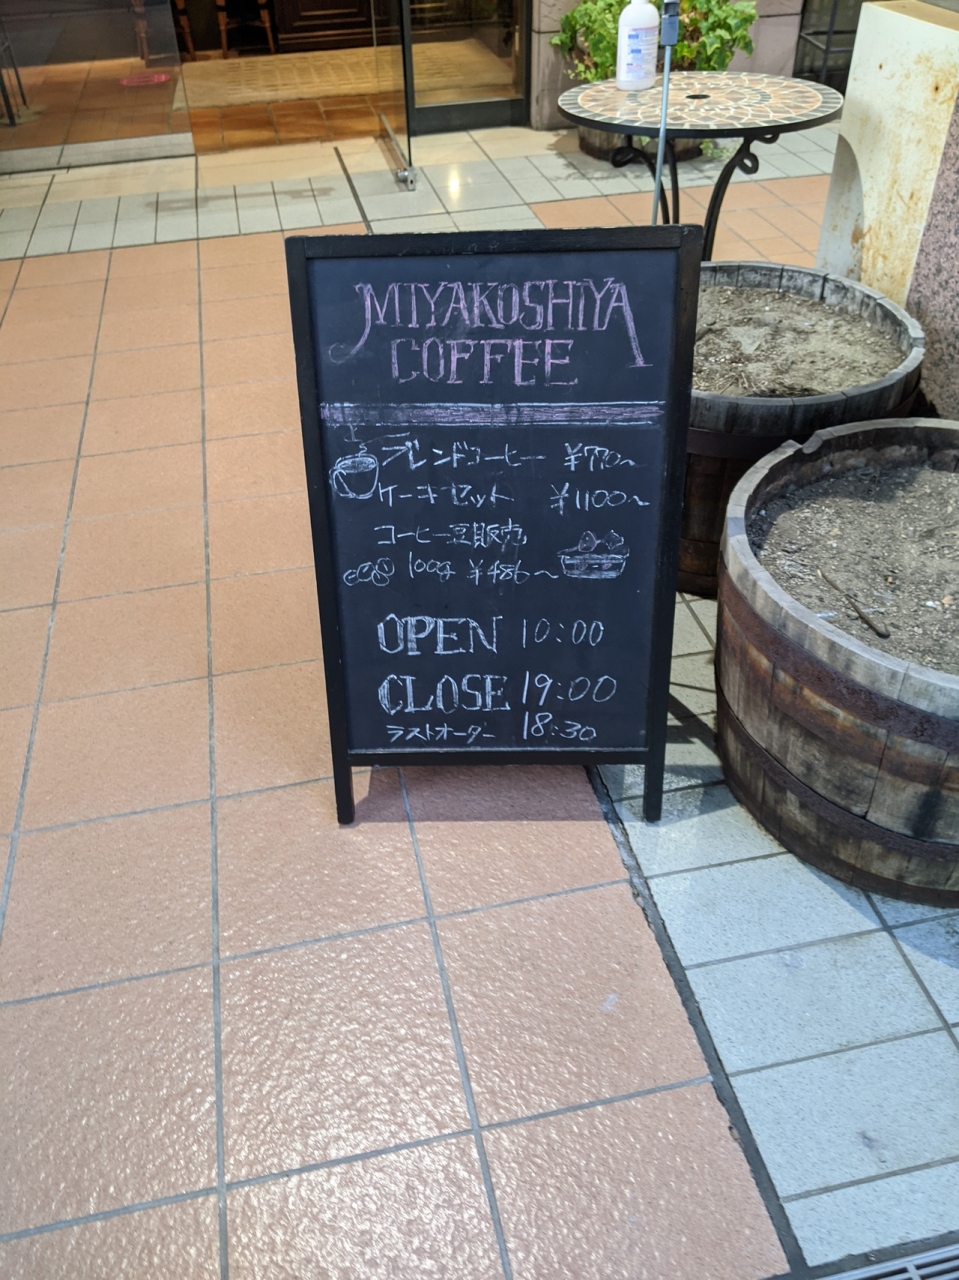 MIYAKOSHIYA
COFFEE
ブレンドコーヒー ¥770~
ケーキセット ¥1100~
コーヒー豆販売
100g ¥486~
OPEN 10:00
CLOSE 19:00
ラストオーダー 18:30